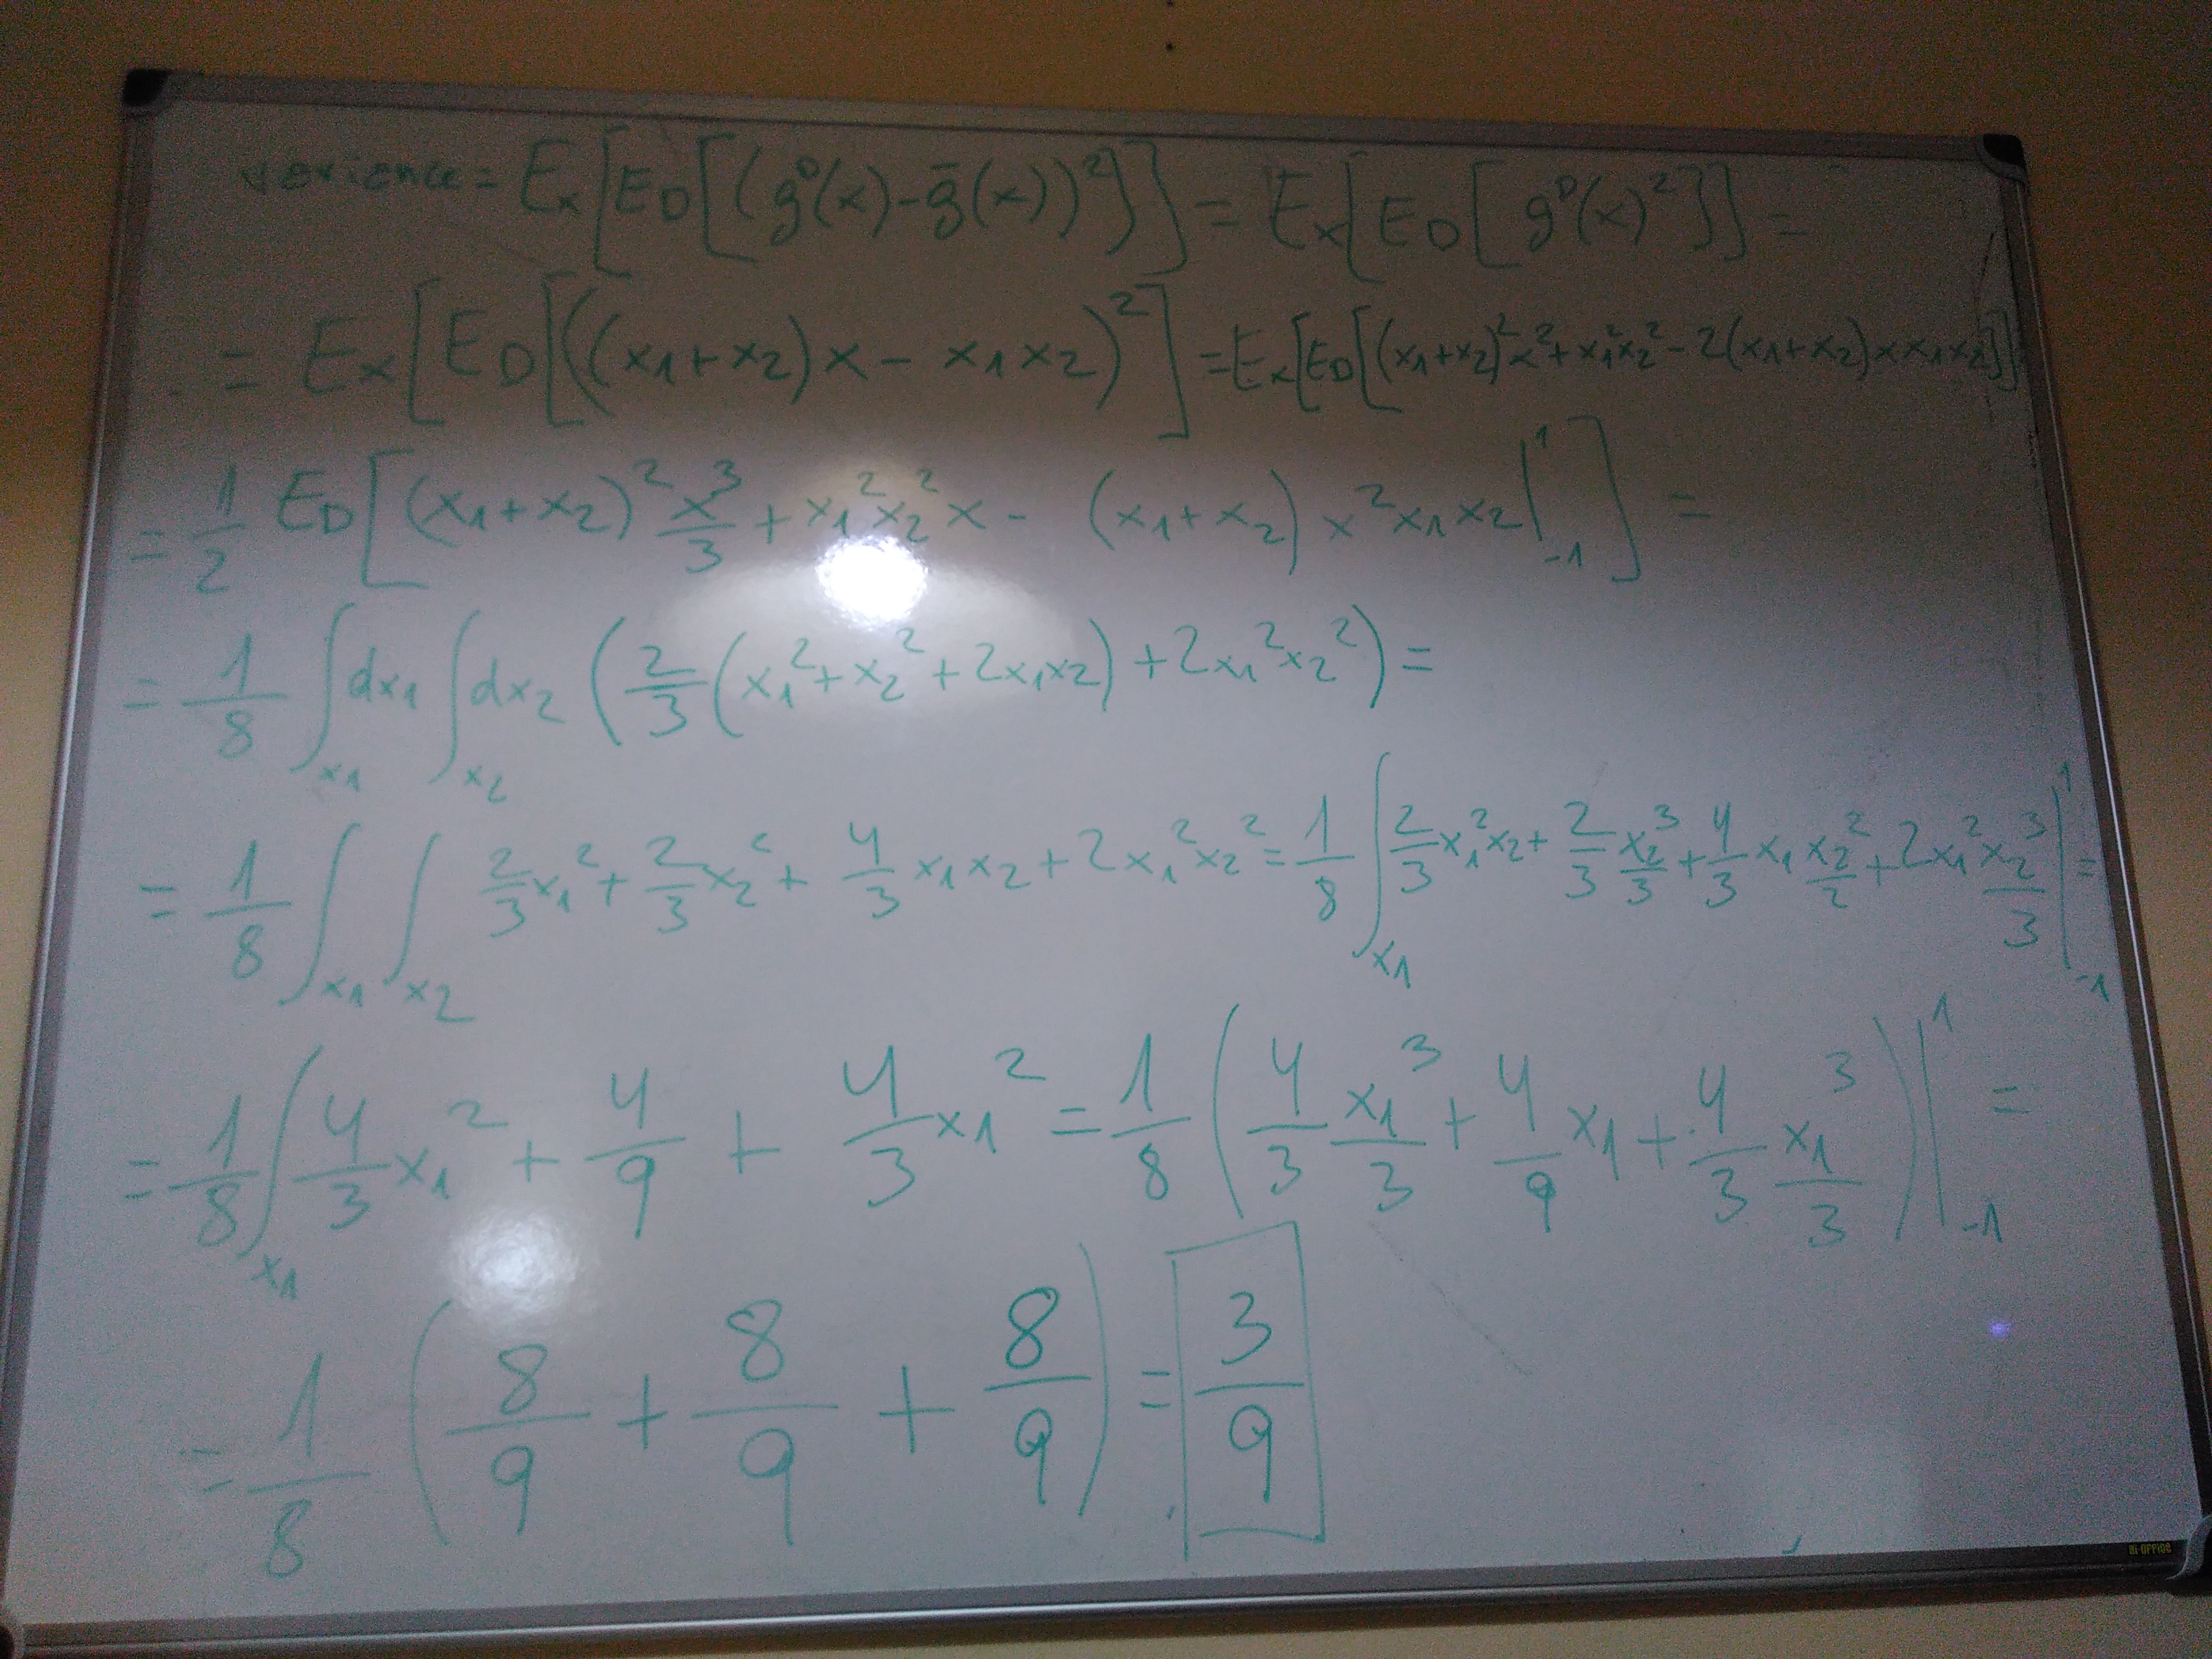 verience = Ex[ED[(g^D(x)-ḡ(x))²]] = Ex[ED[g^D(x)²]] =
= Ex[ED[((x₁+x₂)x - x₁x₂)²] = Ex[ED[(x₁+x₂)²x²+x₁²x₂²-2(x₁+x₂)xx₁x₂]]
= 1/2 ED[(x₁+x₂)² x³/3 + x₁²x₂²x - (x₁+x₂)x²x₁x₂|₋₁¹] =
= 1/8 ∫x₁ dx₁ ∫x₂ dx₂ (2/3(x₁²+x₂²+2x₁x₂)+2x₁²x₂²) =
= 1/8 ∫x₁ ∫x₂ 2/3x₁² + 2/3x₂² + 4/3 x₁x₂ + 2x₁²x₂² = 1/8 ∫x₁ 2/3x₁²x₂ + 2/3 x₂³/3 + 4/3 x₁ x₂²/2 + 2x₁² x₂³/3 |₋₁¹ =
= 1/8 ∫x₁ 4/3 x₁² + 4/9 + 4/3 x₁² = 1/8 (4/3 x₁³/3 + 4/9 x₁ + 4/3 x₁³/3)|₋₁¹ =
= 1/8 (8/9 + 8/9 + 8/9) = 3/9
BI-OFFICE